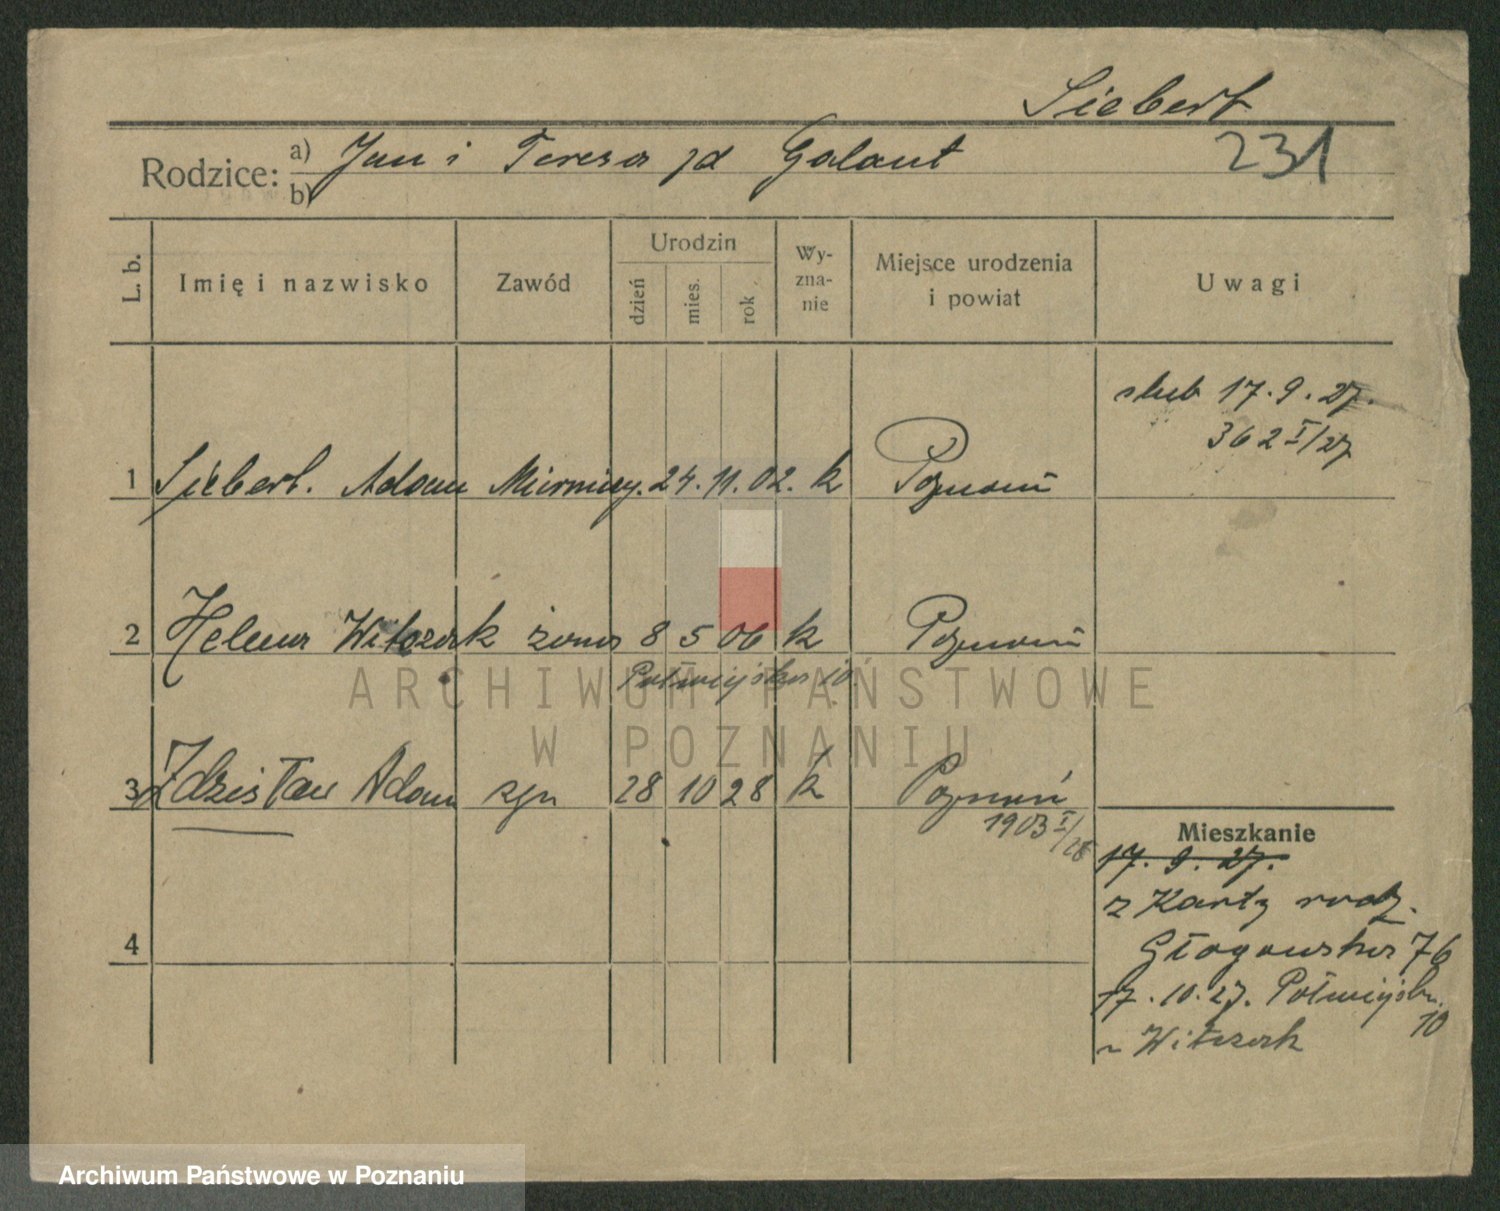 Siebert
231
Rodzice: a) Jan i Teresa zd Galant
b)
L. b.
Imię i nazwisko
Zawód
Urodzin
dzień
mies.
rok
Wy-
zna-
nie
Miejsce urodzenia
i powiat
Uwagi
ślub 17.9.27.
362 I/27
1 Siebert. Adam Mierniczy. 24. 11. 02. k Poznań
2 Helena Witczak żona 8 5 06 k Poznań
Półwiejska 10
3 Zdzisław Adam syn 28 10 28 k Poznań
1903 I/28
4
Mieszkanie
17. 9. 27.
z Karty rodz.
Głogowska 76
17.10.27. Półwiejska.
10
Witczak
ARCHIWUM PAŃSTWOWE
W POZNANIU
Archiwum Państwowe w Poznaniu